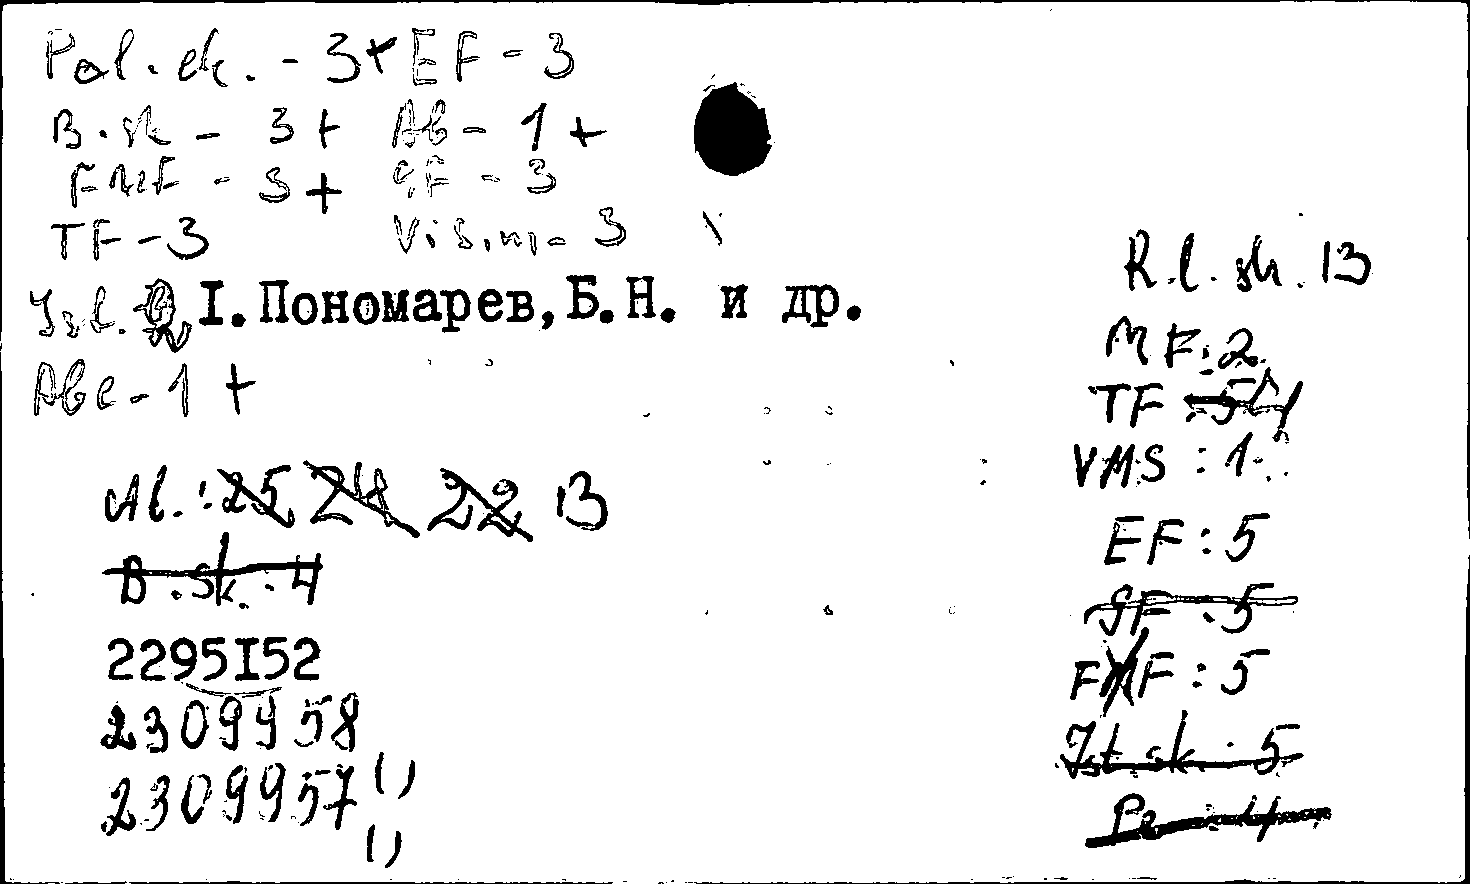 Pol. ek. - 3+ EF - 3
B. sk - 3+ Ab - 1 +
FMF - 3 + GF - 3
TF - 3 Vis. m. - 3
I. Пономарев, Б.Н. и др.
Abc - 1 +
R. l. sk. 13
MF: 2
TF : 5
VMS : 1
EF : 5
GF : 5
FMF : 5
Ist. sk. : 5
Ab. : 25 24 22 13
B. sk. : 4
2295I52
2309958
2309957